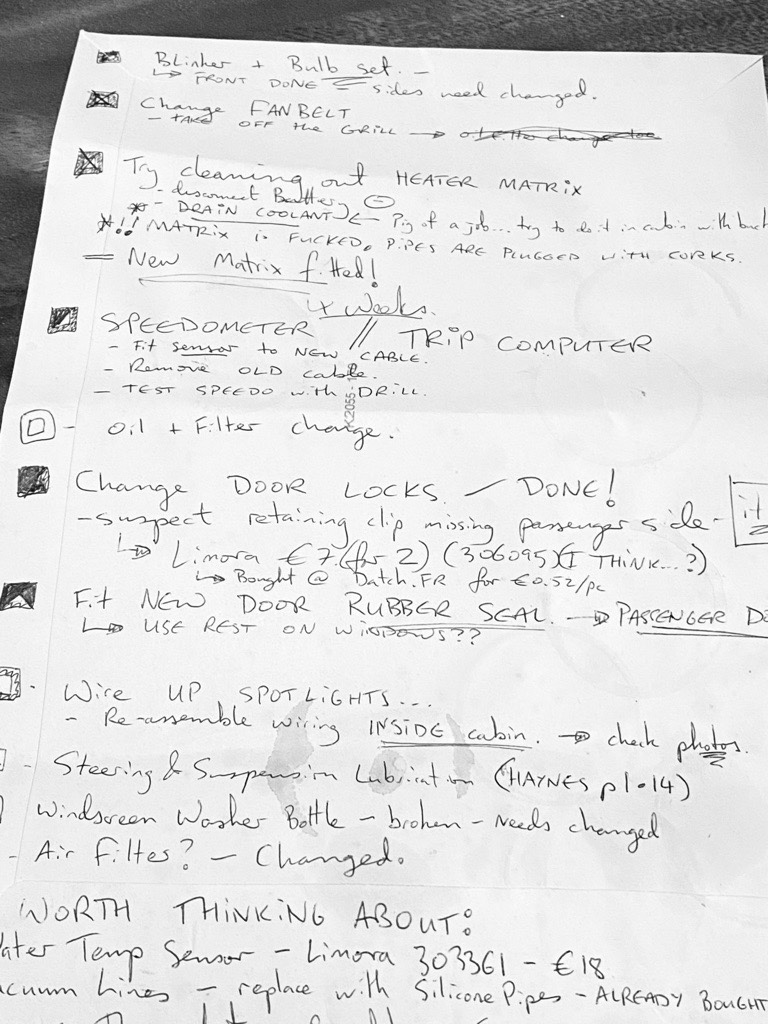 Blinker + Bulb set. –
↳ FRONT DONE – sides need changed.
Change FANBELT
– TAKE OFF the GRILL →
Try cleaning out HEATER MATRIX
– disconnect Battery ⊖
* – DRAIN COOLANT ← Pig of a job... try to do it in cabin with
*!! MATRIX is FUCKED. PIPES ARE PLUGGED WITH CORKS.
= New Matrix fitted!
4x Weeks.
SPEEDOMETER // TRIP COMPUTER
– Fit sensor to NEW CABLE.
– Remove OLD cable.
– TEST SPEEDO with DRILL.
K2055 - 1
– Oil + Filter change.
Change DOOR LOCKS. / DONE!
– suspect retaining clip missing passenger side – it
↳ Limora €7 (for 2) (306095) (I THINK...?)
↳ Bought @ Datch.FR for €0.52/pc
Fit NEW DOOR RUBBER SEAL. → PASSENGER DO
↳ USE REST ON WINDOWS??
– Wire UP SPOTLIGHTS...
– Re-assemble wiring INSIDE cabin. → check photos.
– Steering & Suspension Lubrication (HAYNES p1.14)
Windscreen Washer Bottle – broken – Needs changed
– Air Filter? – Changed.
WORTH THINKING ABOUT:
ater Temp Sensor – Limora 303361 – €18
acuum Lines – replace with Silicone Pipes – ALREADY BOUGHT